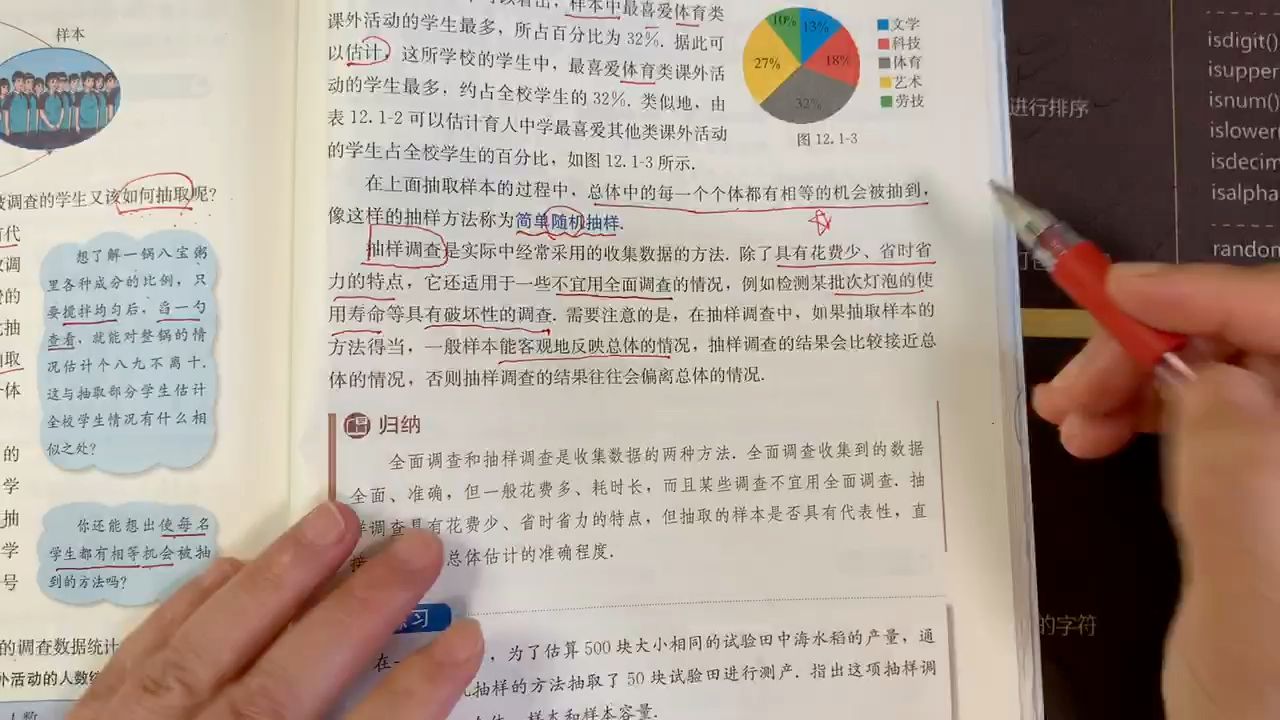 样本
被调查的学生又该如何抽取呢?
想了解一锅八宝粥
里各种成分的比例,只
要搅拌均匀后,舀一勺
查看,就能对整锅的情
况估计个八九不离十.
这与抽取部分学生估计
全校学生情况有什么相
似之处?
你还能想出使每名
学生都有相等机会被抽
到的方法吗?
的调查数据统计
外活动的人数
样本中最喜爱体育类
课外活动的学生最多,所占百分比为32%.据此可
以估计,这所学校的学生中,最喜爱体育类课外活
动的学生最多,约占全校学生的32%.类似地,由
表12.1-2可以估计育人中学最喜爱其他类课外活动
的学生占全校学生的百分比,如图12.1-3所示.
10%
13%
18%
27%
32%
文学
科技
体育
艺术
劳技
图12.1-3
在上面抽取样本的过程中,总体中的每一个个体都有相等的机会被抽到,
像这样的抽样方法称为简单随机抽样.
抽样调查是实际中经常采用的收集数据的方法.除了具有花费少、省时省
力的特点,它还适用于一些不宜用全面调查的情况,例如检测某批次灯泡的使
用寿命等具有破坏性的调查.需要注意的是,在抽样调查中,如果抽取样本的
方法得当,一般样本能客观地反映总体的情况,抽样调查的结果会比较接近总
体的情况,否则抽样调查的结果往往会偏离总体的情况.
归纳
全面调查和抽样调查是收集数据的两种方法.全面调查收集到的数据
全面、准确,但一般花费多、耗时长,而且某些调查不宜用全面调查.抽
样调查具有花费少、省时省力的特点,但抽取的样本是否具有代表性,直
总体估计的准确程度.
习
,为了估算500块大小相同的试验田中海水稻的产量,通
机抽样的方法抽取了50块试验田进行测产.指出这项抽样调
样本和样本容量.
进行排序
的字符
isdigit()
isupper
isnum()
islower
isdecim
isalpha
random